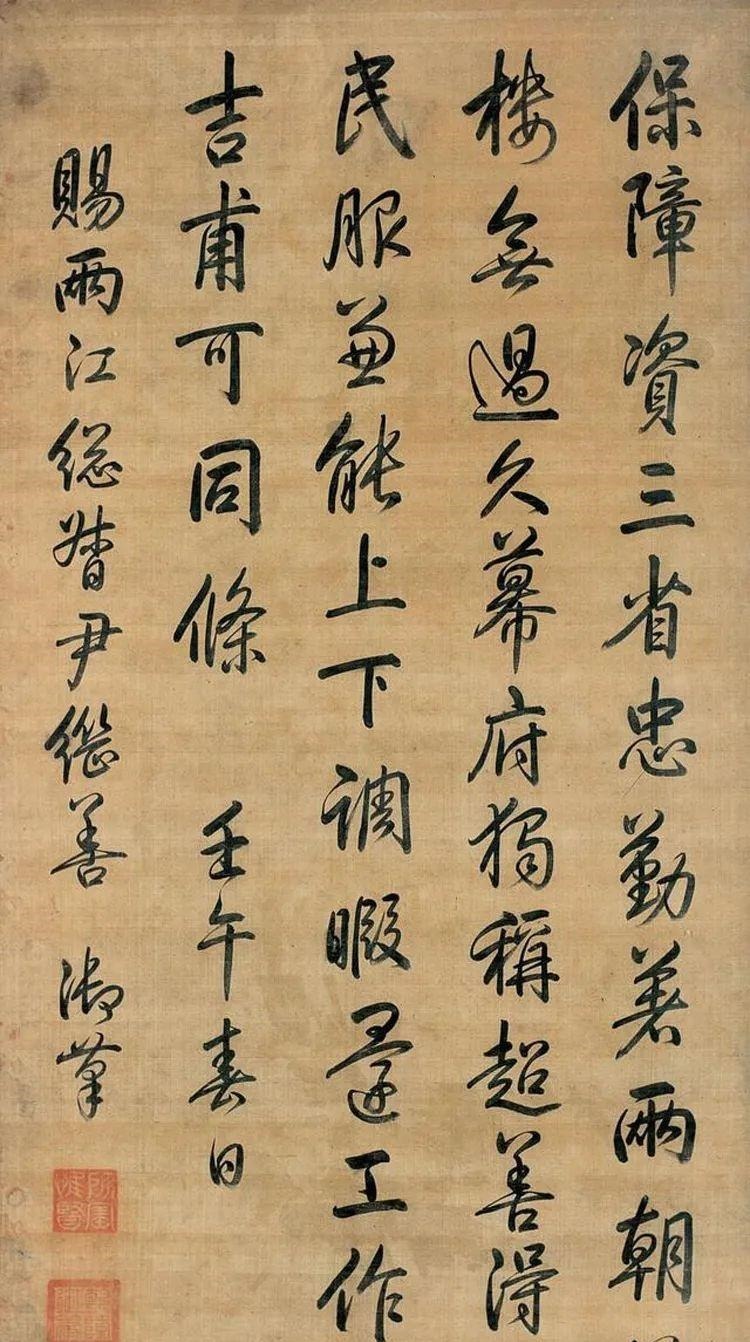 保障資三省忠勤著兩朝
樓無過久幕府獨稱超善得
民服兼能上下調暇還工作
吉甫可同條 壬午春日
賜兩江總督尹繼善 御筆